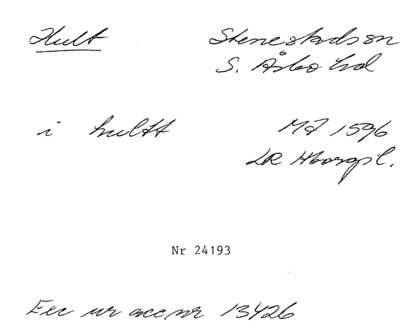 Hult Stenestads sn
S. Åsbo hd
i hultt MJ 1596
LR Hborgpl.
Nr 24193
Exc ur acc nr 13426